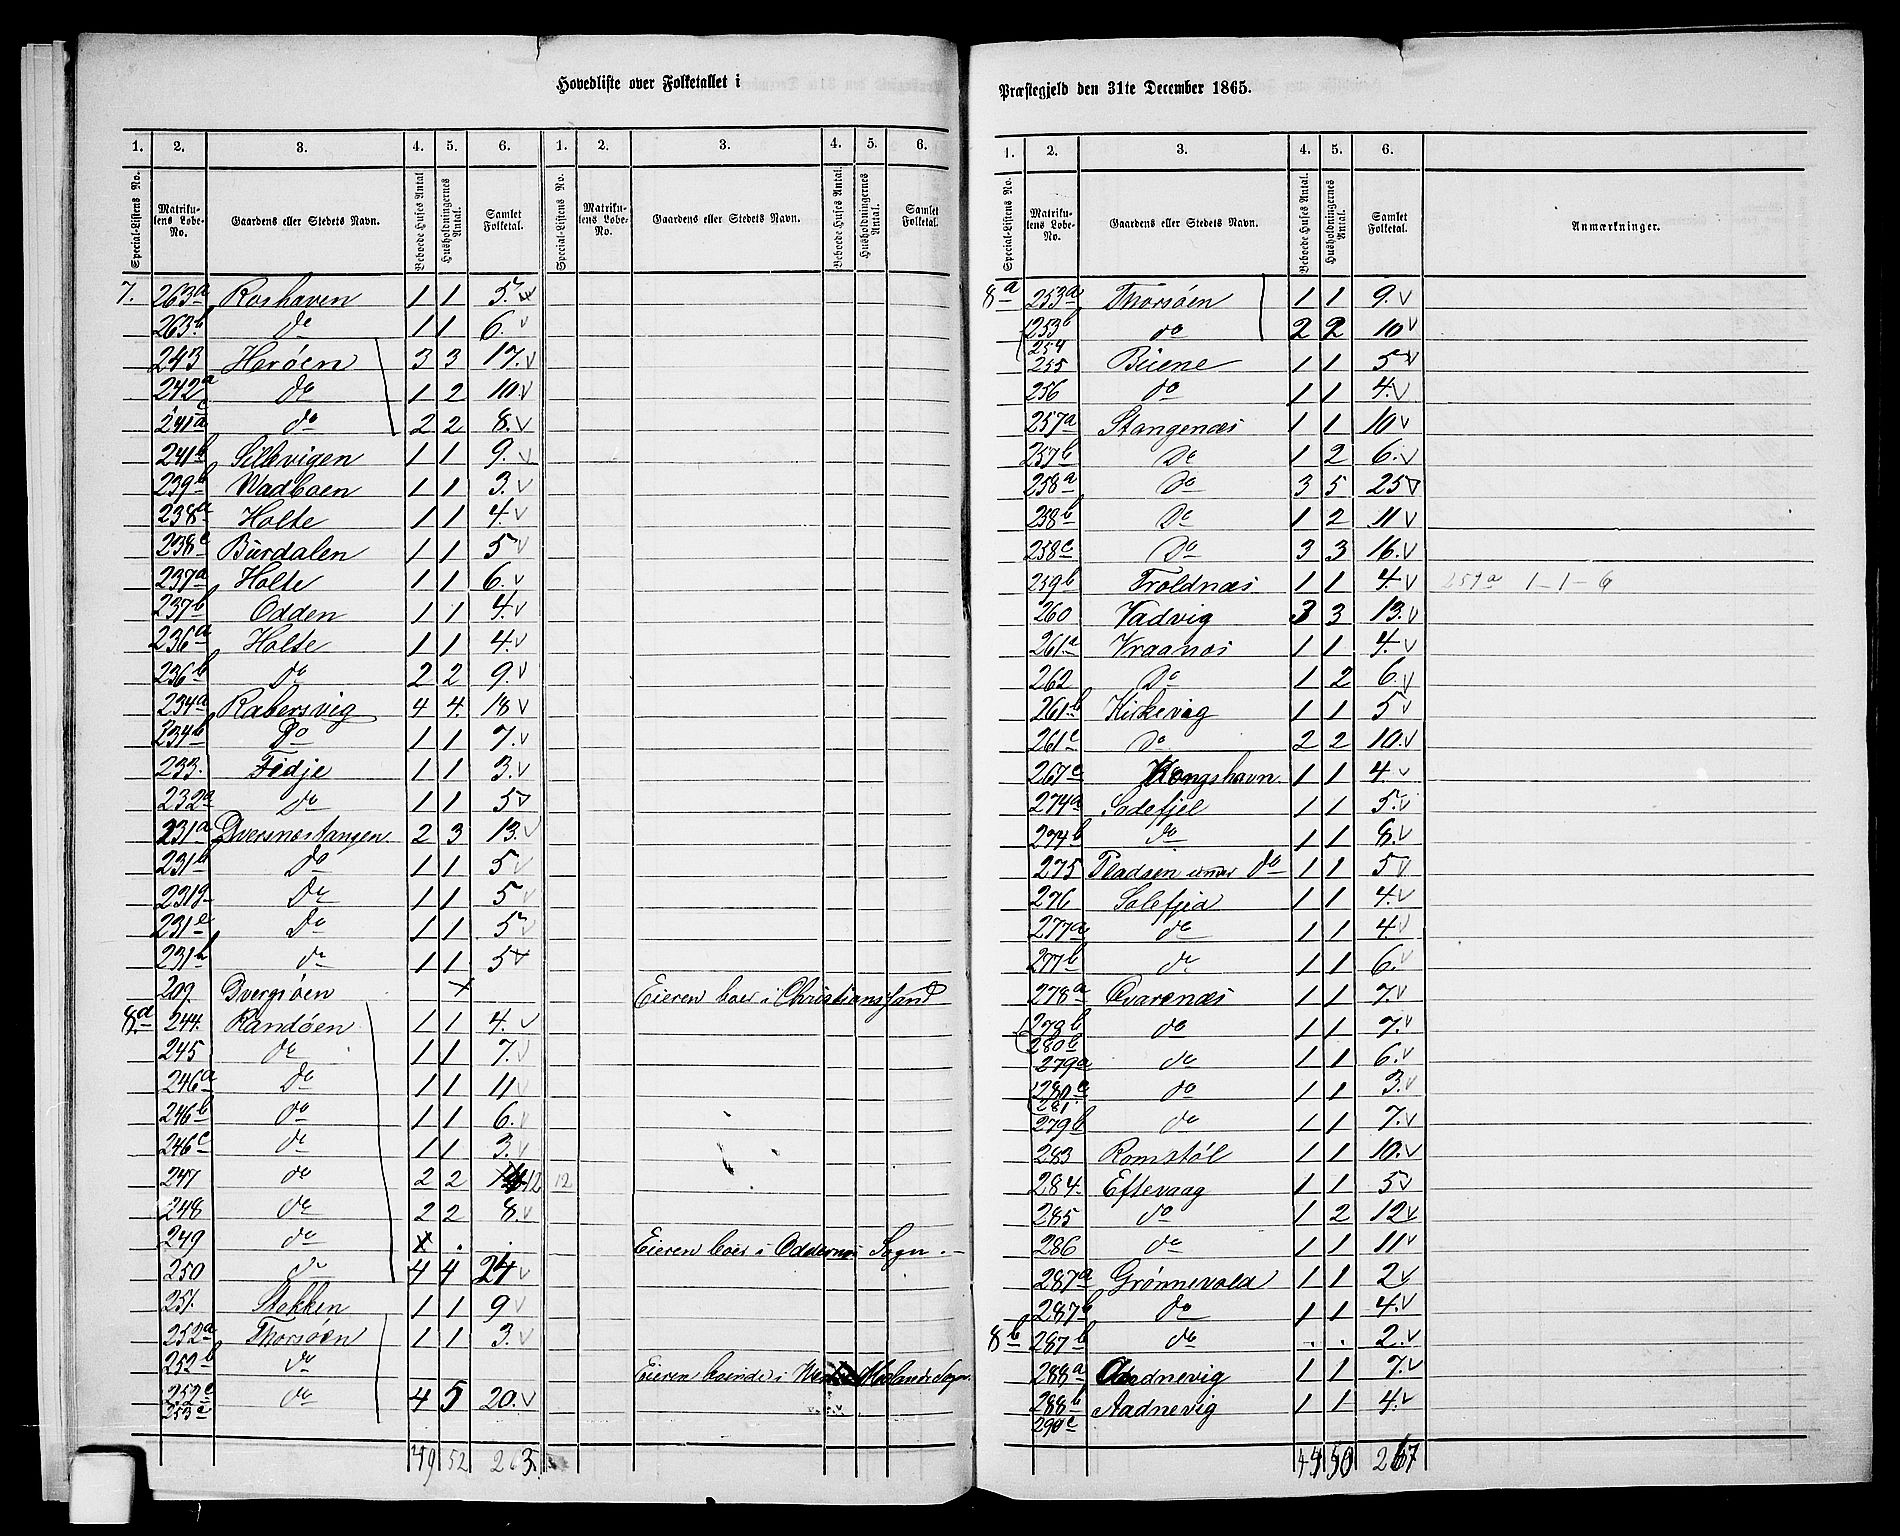 Hovedliste over Folketallet i
1. 2. 3. 4. 5. 6. 1. 2. 3. 4. 5. 6.
Special-Listens No. Matrikulens Løbe-No. Gaardens eller Stedets Navn. Beboede Huses Antal Husholdningernes Antal. Samlet Folketal. Special-Listens No. Matrikulens Løbe-No. Gaardens eller Stedets Navn. Beboede Huses Antal. Husholdningernes Antal. Samlet Folketal.
7. 263a Roshaven 1 1 5.
263b do 1 1 6.
243 Herøen 3 3 17.
242a do 1 2 10.
241a c do 2 2 8.
241b Sillevigen 1 1 9.
239b Wadboen 1 1 3.
238a Holte 1 1 4.
238c Burdalen 1 1 5
237a Holte 1 1 6.
237b Odden 1 1 4.
236a Holte 1 1 4.
236b Do 2 2 9.
234a Rabersvig 4 4. 18
234b Do 1 1 7.
233. Fidje 1 1 3.
232a do 1 1 5
231a Dversnæstangen 2 3 13.
231b do 1 1 5
231g Do 1 1 5
231e Do 1 1 5
231h do 1 1 5
209. Dvergsøen x Eieren boer i Christianssand
8d 244. Randøen 1 1 4.
245 do 1 1 7.
246a Do 1 1 11
246b do 1 1 6.
246c do 1 1 3.
247 do 2 2 12 12
248 do 2 2 8.
249 do x . . Eieren boer i Oddernæs Sogn.
250 do 4 4 24
251. Stokken 1 1 9
252a Thorsøen 1 1 3.
252b do Eieren boende i Holands Sogn
252c 253c do 4 5 20.
49 52 263.
Præstegjeld den 31te December 1865.
1. 2. 3. 4. 5. 6.
Special-Listens No. Matrikulens Løbe-No. Gaardens eller Stedets Navn. Beboede Huses Antal. Husholdningernes Antal. Samlet Folketal. Anmærkninger.
8a 253a Thorsøen 1 1 9.
253b 254 do 2 2 10
255 Beiene 1 1 5
256 do 1 1 4.
257a Stangenæs 1 1 10
257b Do 1 2 6.
258a Do 3 5 25
258b Do 1 2 11
258c Do 3 3 16.
259b Troldnæs 1 1 4. 259a 1-1-6
260 Vadvig 3 3 13.
261a Vraanæs 1 1 4.
262 Do 1 2 6.
261b Kirkevig 1 1 5
261c Do 2 2 10.
267c Kongshavn. 1 1 4.
274a Sodefjel 1 1 5.
274b do 1 1 8.
275 Pladsen under do 1 1 5
276 Solefjed 1 1 4.
277a do 1 1 4
277b do 1 1 6.
278a Qvarenæs 1 1 7.
278b 280b do 1 1 7.
279a do 1 1 6.
280c 281. do 1 1 3.
279b do 1 1 7.
283 Romstøl 1 1 10.
284. Eftevaag 1 1 5
285 do 1 2 12
286 do 1 1 11
287a Grønnevold 1 1 2
287b do 1 1 4.
8b 287b do . . 2.
288a Aadnevig 1 1 7.
288b 290c Aadnevig 1 1 4.
50 267